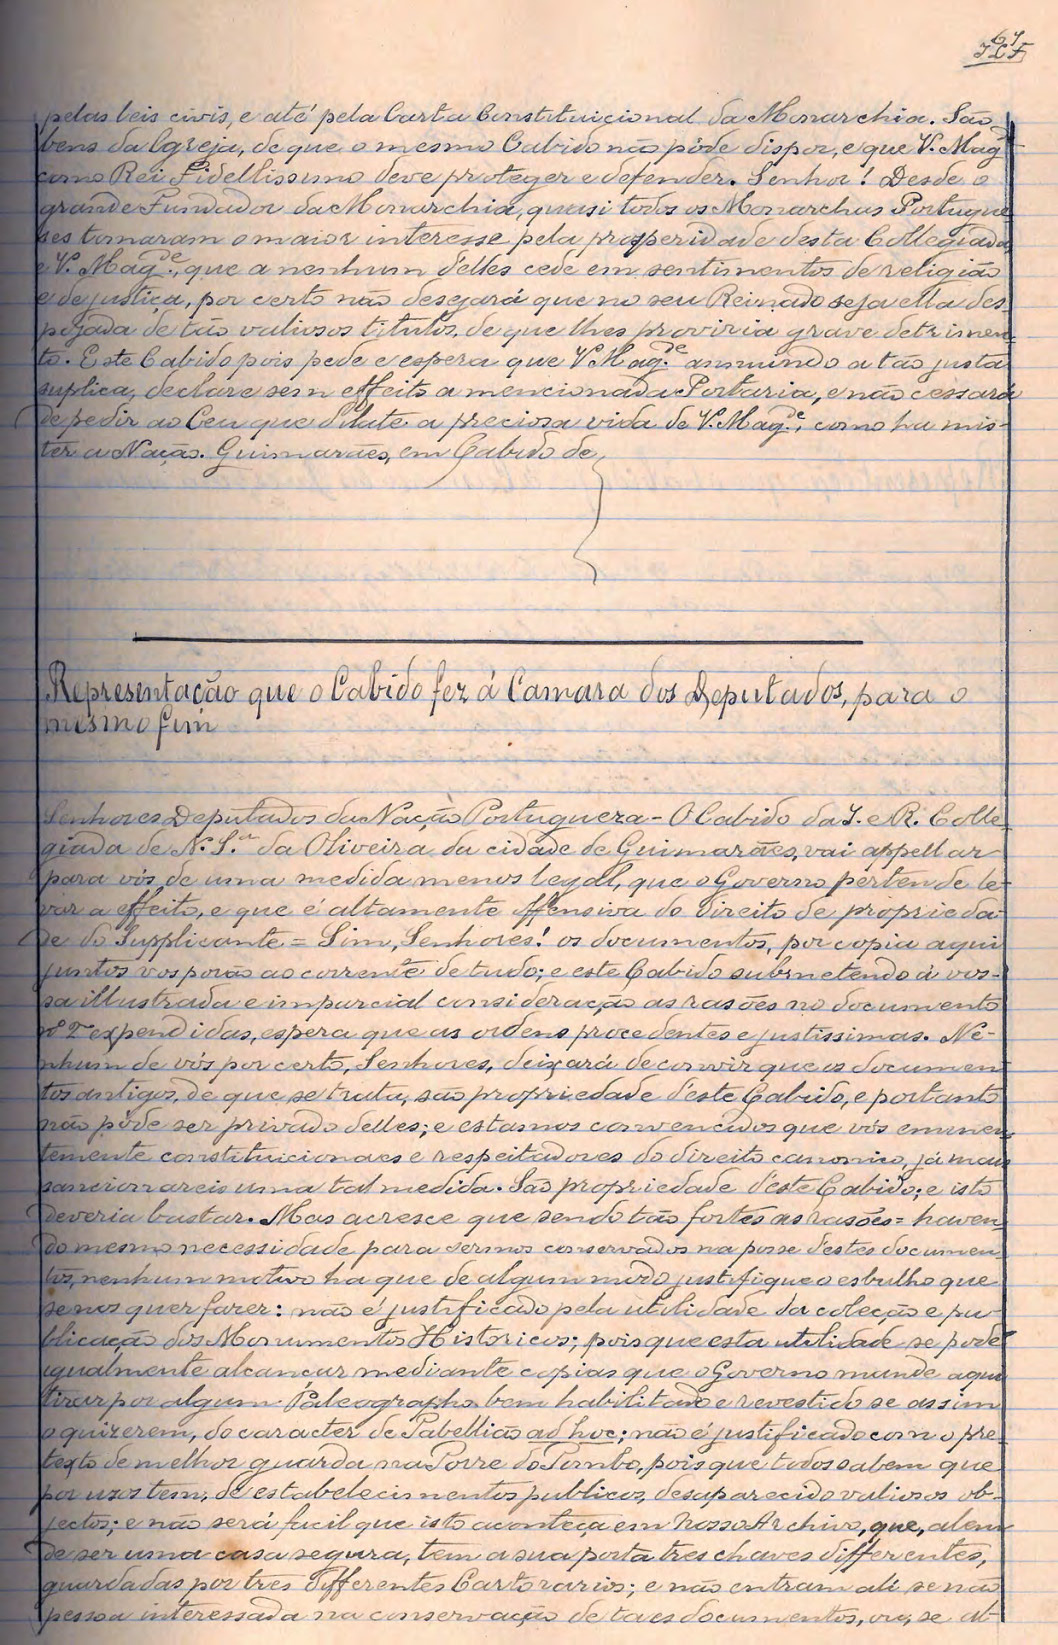 61
pelas leis civis, e até pela Carta Constituicional da Monarchia. São
bens da Egreja, de que o mesmo Cabido não póde dispor, e que V. Mag.de
como Rei Fidellissimo deve proteger e defender. Senhor! Desde o
grande Fundador da Monarchia, quasi todos os Monarchas Portugue-
ses tomaram o maior interesse pela prosperidade desta Collegiada
e V. Mag.de, que a nenhum d'elles cede em sentimentos de religião
e de justiça, por certo não desejará que no seu Reinado seja ella des-
pojada de tão valiosos titulos, de que lhes proviria grave detrimen-
to. Este Cabido pois pede e espera que V. Mag.de annuindo a tão justa
suplica, declare sem effeito a mencionada Portaria, e não cessará
de pedir ao Ceu que dilate a preciosa vida de V. Mag.de, como ha mis-
ter a Nação. Guimarães, em Cabido de
Representação que o Cabido fez á Camara dos Deputados, para o
mesmo fim
Senhores Deputados da Nação Portugueza - O Cabido da I. e R. Colle-
giada de N. S.a da Oliveira da cidade de Guimarães, vai appellar
para vós, de uma medida menos legal, que o Governo pertende le-
var a effeito, e que é altamente offensiva do direito de proprieda-
de do Supplicante = Sim, Senhores! os documentos, por copia aqui
juntos vos porão ao corrente de tudo; e este Cabido submetendo á vos-
sa illustrada e imparcial consideração as rasões no documento
nº 2 expendidas, espera que as ordens procedentes e justissimas. Ne-
nhum de vós por certo, Senhores, deixará de convir que os documen-
tos antigos, de que se trata, são propriedade d'este Cabido, e portanto
não póde ser privado delles; e estamos convencidos que vós eminen-
temente constituicionaes e respeitadores do direito canonico, já mais
sancionareis uma tal medida. São propriedade d'este Cabido; e isto
deveria bastar. Mas acresce que sendo tão fortes as rasões = haven-
do mesmo necessidade para sermos conservados na posse d'estes documen-
tos, nenhum motivo ha que de algum modo justifique o esbulho que
se nos quer fazer: não é justificado pela utilidade da coleção e pu-
blicação dos Monumentos Historicos; pois que esta utilidade se pode
igualmente alcançar mediante copias que o Governo mande aqui
tirar por algum Paleographo bem habilitado e revestido se assim
o quizerem, do caracter de Tabellião ad hoc; não é justificado com o pre-
texto de melhor guarda na Torre do Tombo, pois que todos sabem que
por vezes tem, de estabelecimentos publicos, desaparecido valiosos ob-
jectos; e não será facil que isto aconteça em nosso Archivo, que, alem
de ser uma casa segura, tem a sua porta tres chaves differentes,
guardadas por tres differentes Cartorarios; e não entram ali se não
pessoa interessada na conservação de taes documentos, ou, se al-